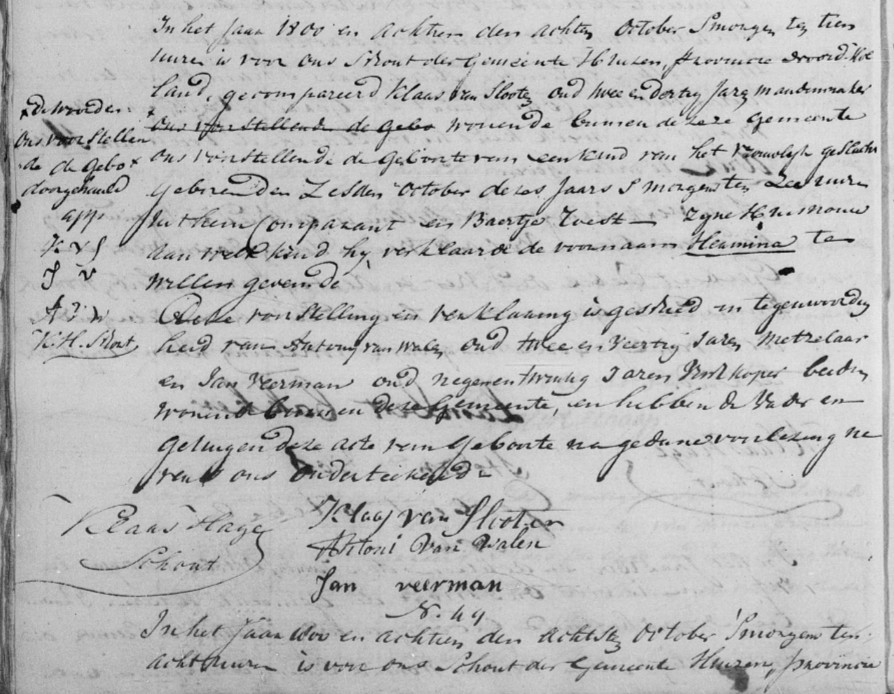 In het Jaar 1800 en achtien den achten October Smorgens ten tien
uuren is voor ons Schout der Gemeente Huizen, provincie Noord Hol
land, gecompareerd Klaas van Slooten oud twee en dertig Jaren mandenmaker
ons voorstellende de Gebo wonende binnen deze Gemeente
ons voorstellende de Geboorte van een kind van het vrouwlyk geslacht
Geboren den Zesden October dezes Jaars Smorgens ten Zes uuren
uit hem Comparant en Baertje Zeest Zyne Huisvrouw
aan welk kind hy verklaarde de voornaam Hermina te
willen geven de
Deze voorstelling en verklaaring is geschied in tegenwoordig
heid van Antony van Walen oud twee en Veertig Jaren Metzelaar
en Jan Veerman oud negenentwintig Jaren Viskoper beiden
wonende binnen deze Gemeente, en hebben de Vader en
getuigen deze acte van Geboorte na gedane voorlezing ne
vens ons onderteekend
x de woorden
ons voorstellen
de de Gebo x
doorgehaald
app.
K V S
J V
A V W
K. H. Schout
Klaas Hage
Schout
Klaas van Slooten
Antoni van Walen
Jan veerman
N. 49
In het Jaar 1800 en achtien den achtste October Smorgens ten
acht uuren is voor ons Schout der Gemeente Huizen, provincie